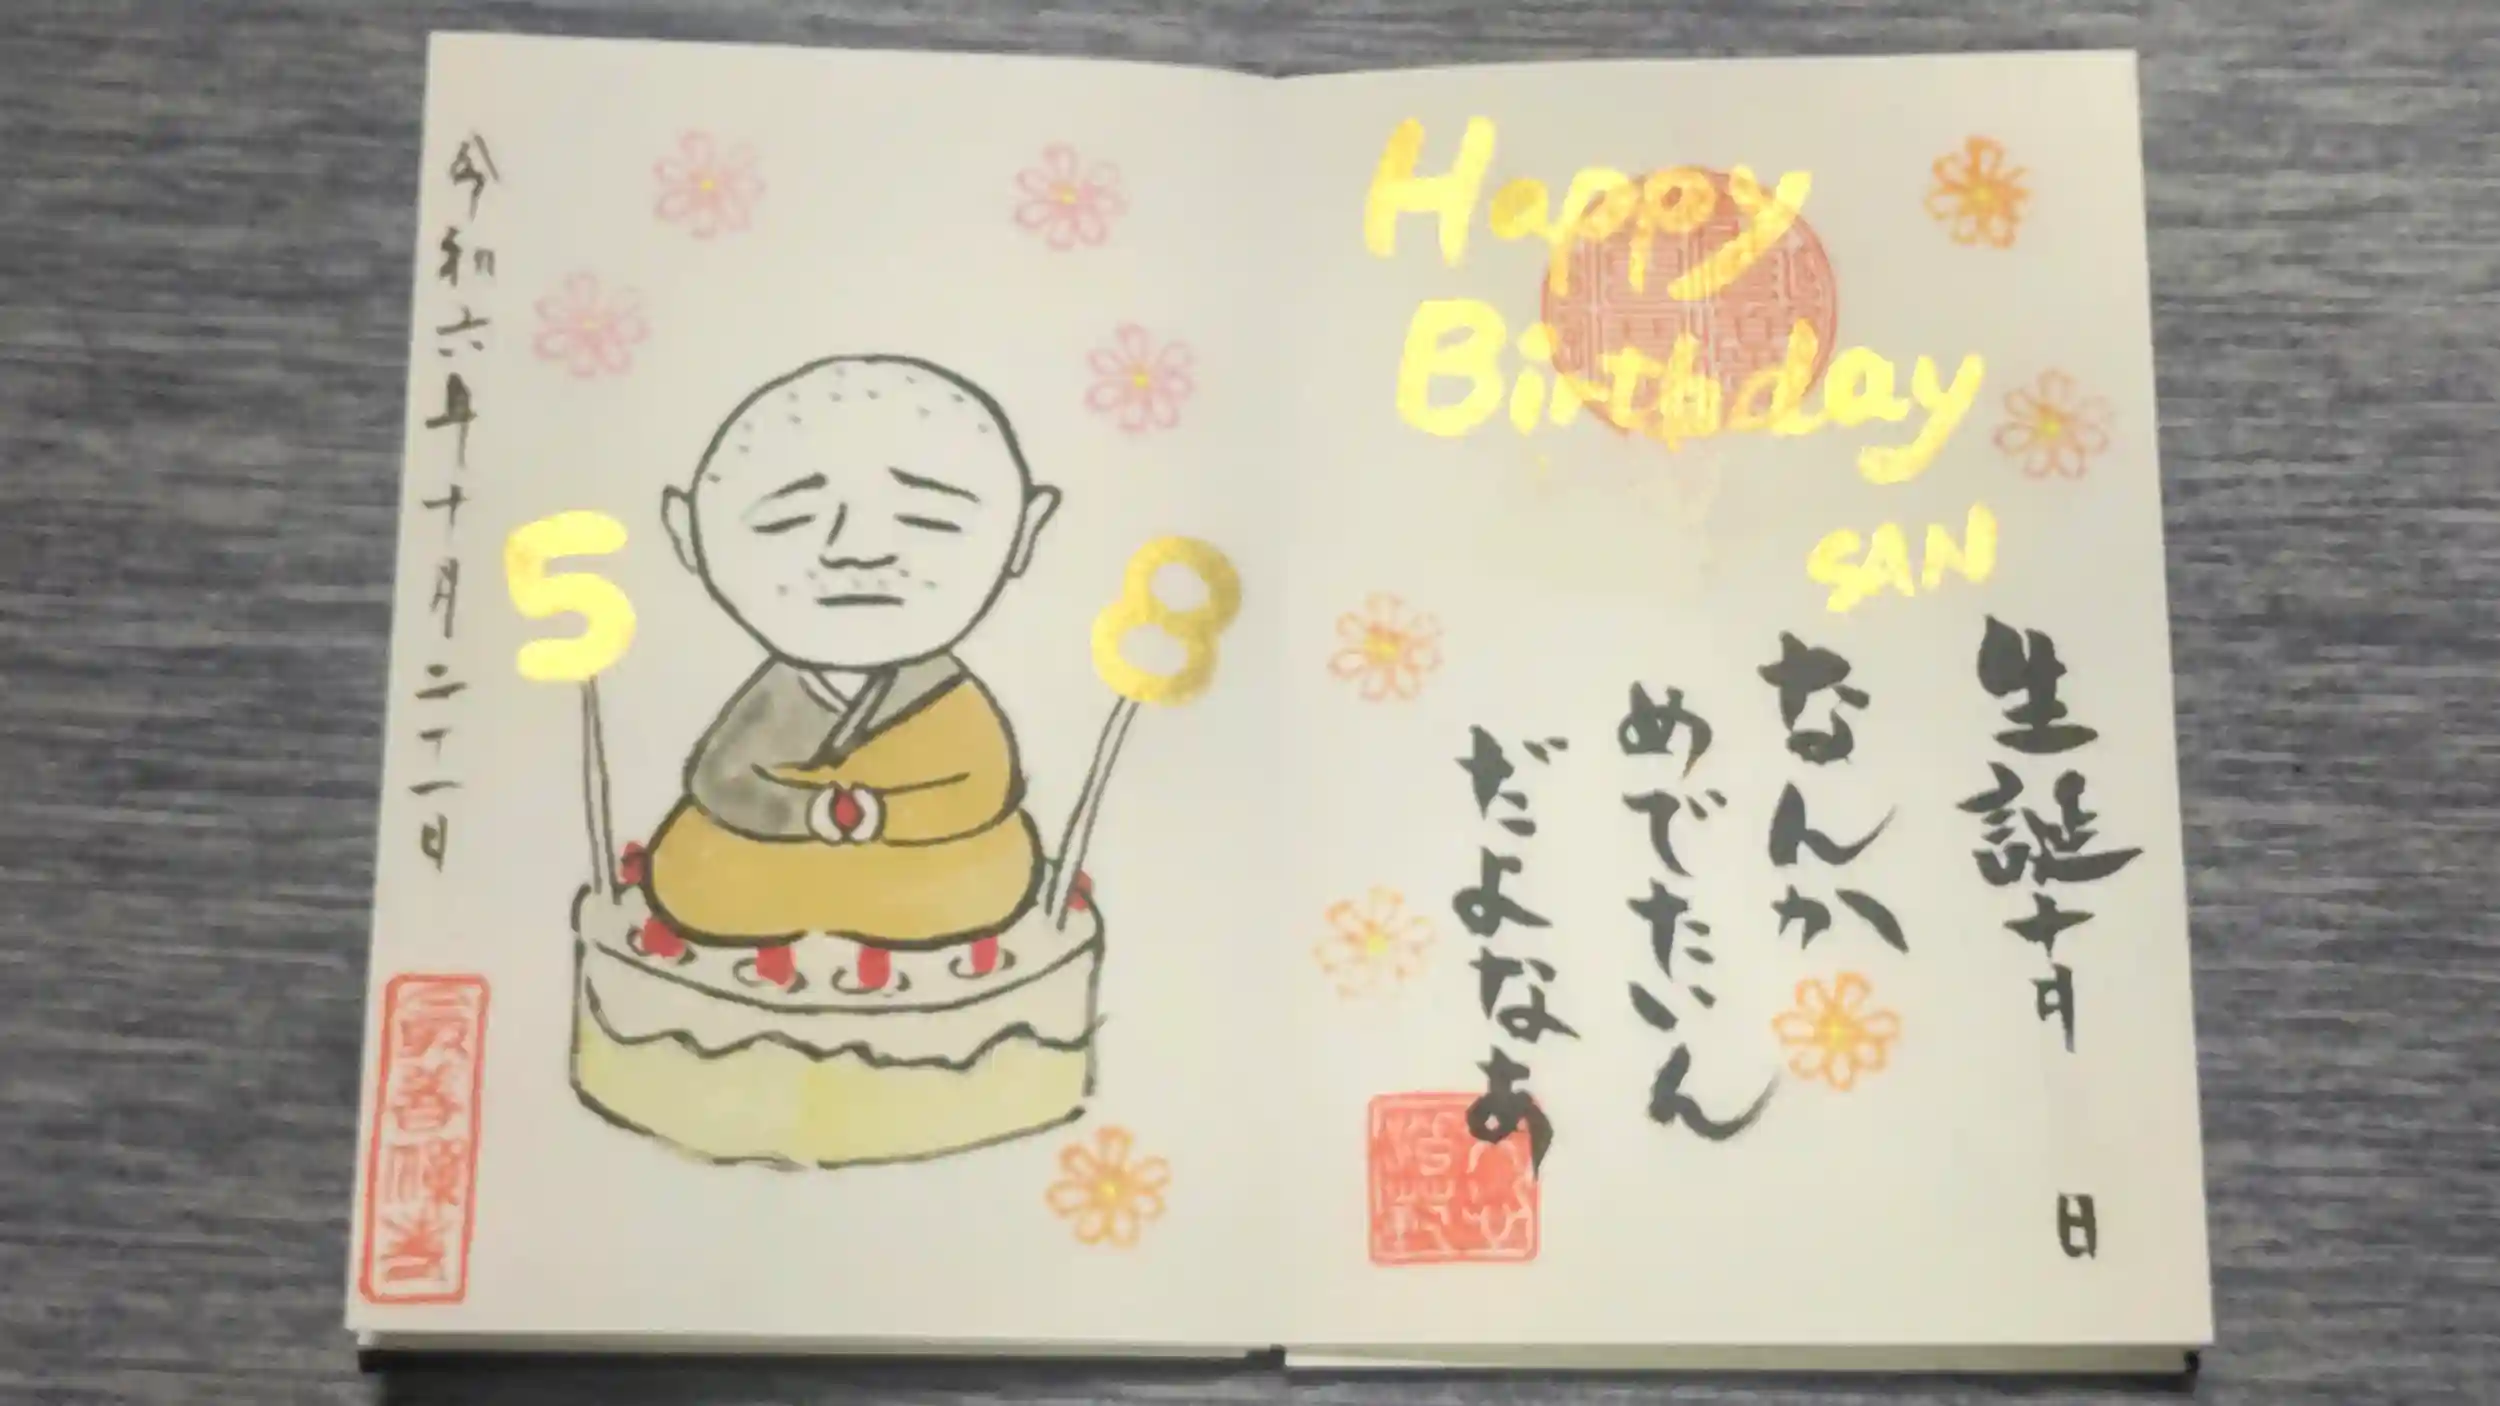 Happy
Birthday
SAN
生誕十月
日
なんか
めでたいん
だよなぁ
令和六年十月二十一日
5
8